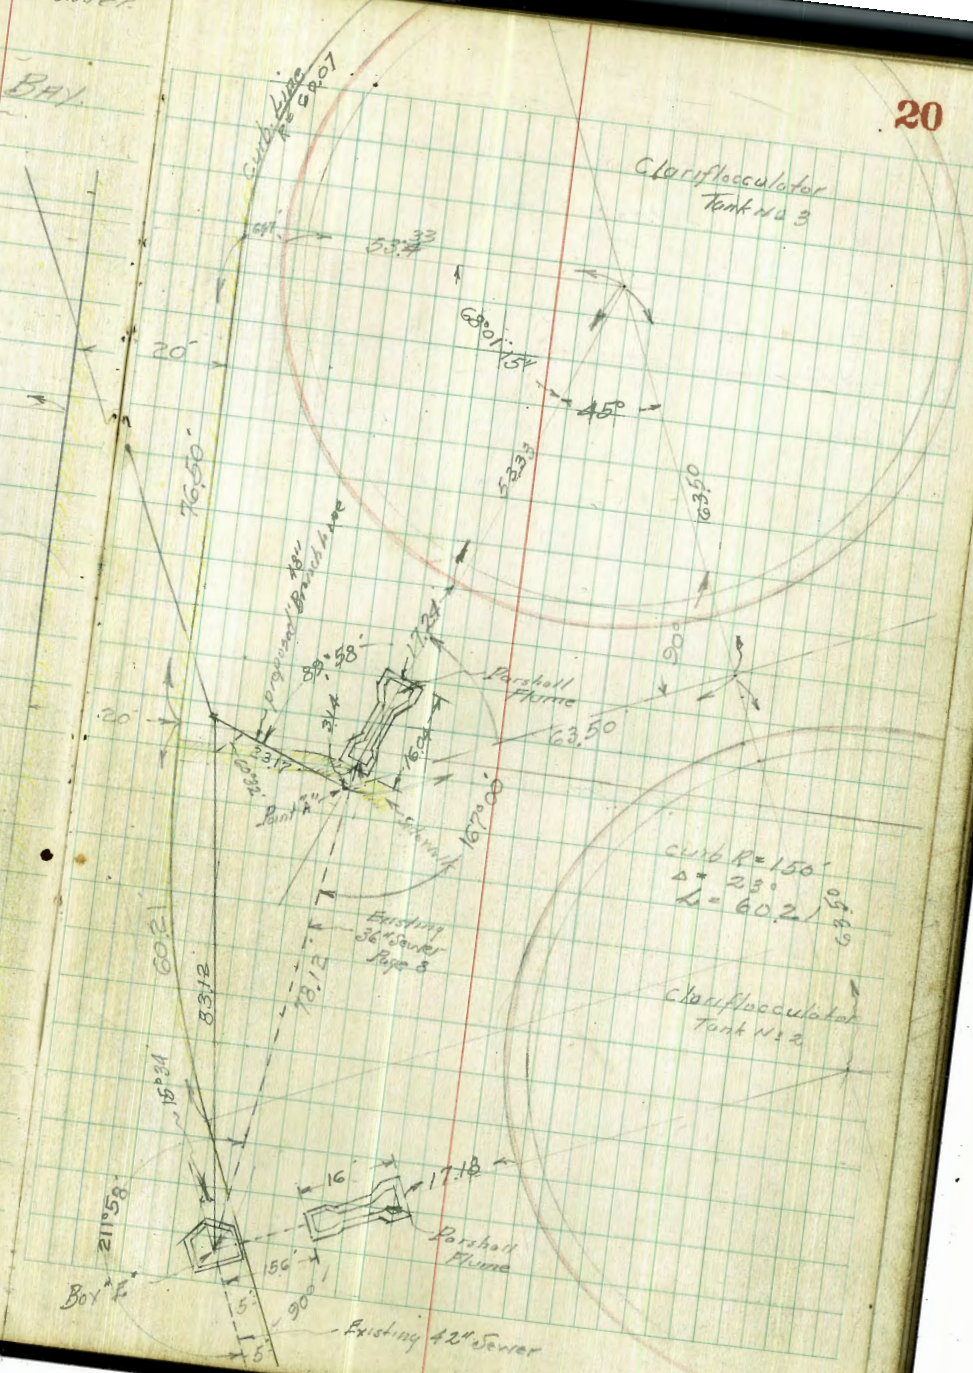 BAY.
20
Curb Line
R = 60.07
Clariflocculator
Tank No 3
53.33
68°01'15"
45°
20'
76.50'
53.33
63.50
proposed 48" Branch Line
89°58'
17.24
90°
Parshall
Flume
3.14
20'
63.50
23.17
16.04
Point "A"
Sidewalk
167°00'
curb R = 150'
Δ = 23°
L = 60.21
63.50
Existing
36" Sewer
Page 8
60.21
83.12
78.12
Clariflocculator
Tank No 2
15°34'
16'
17.18
211°58'
Parshall
Flume
15.6
Box "E"
5'
90°
Existing 42" Sewer
5'